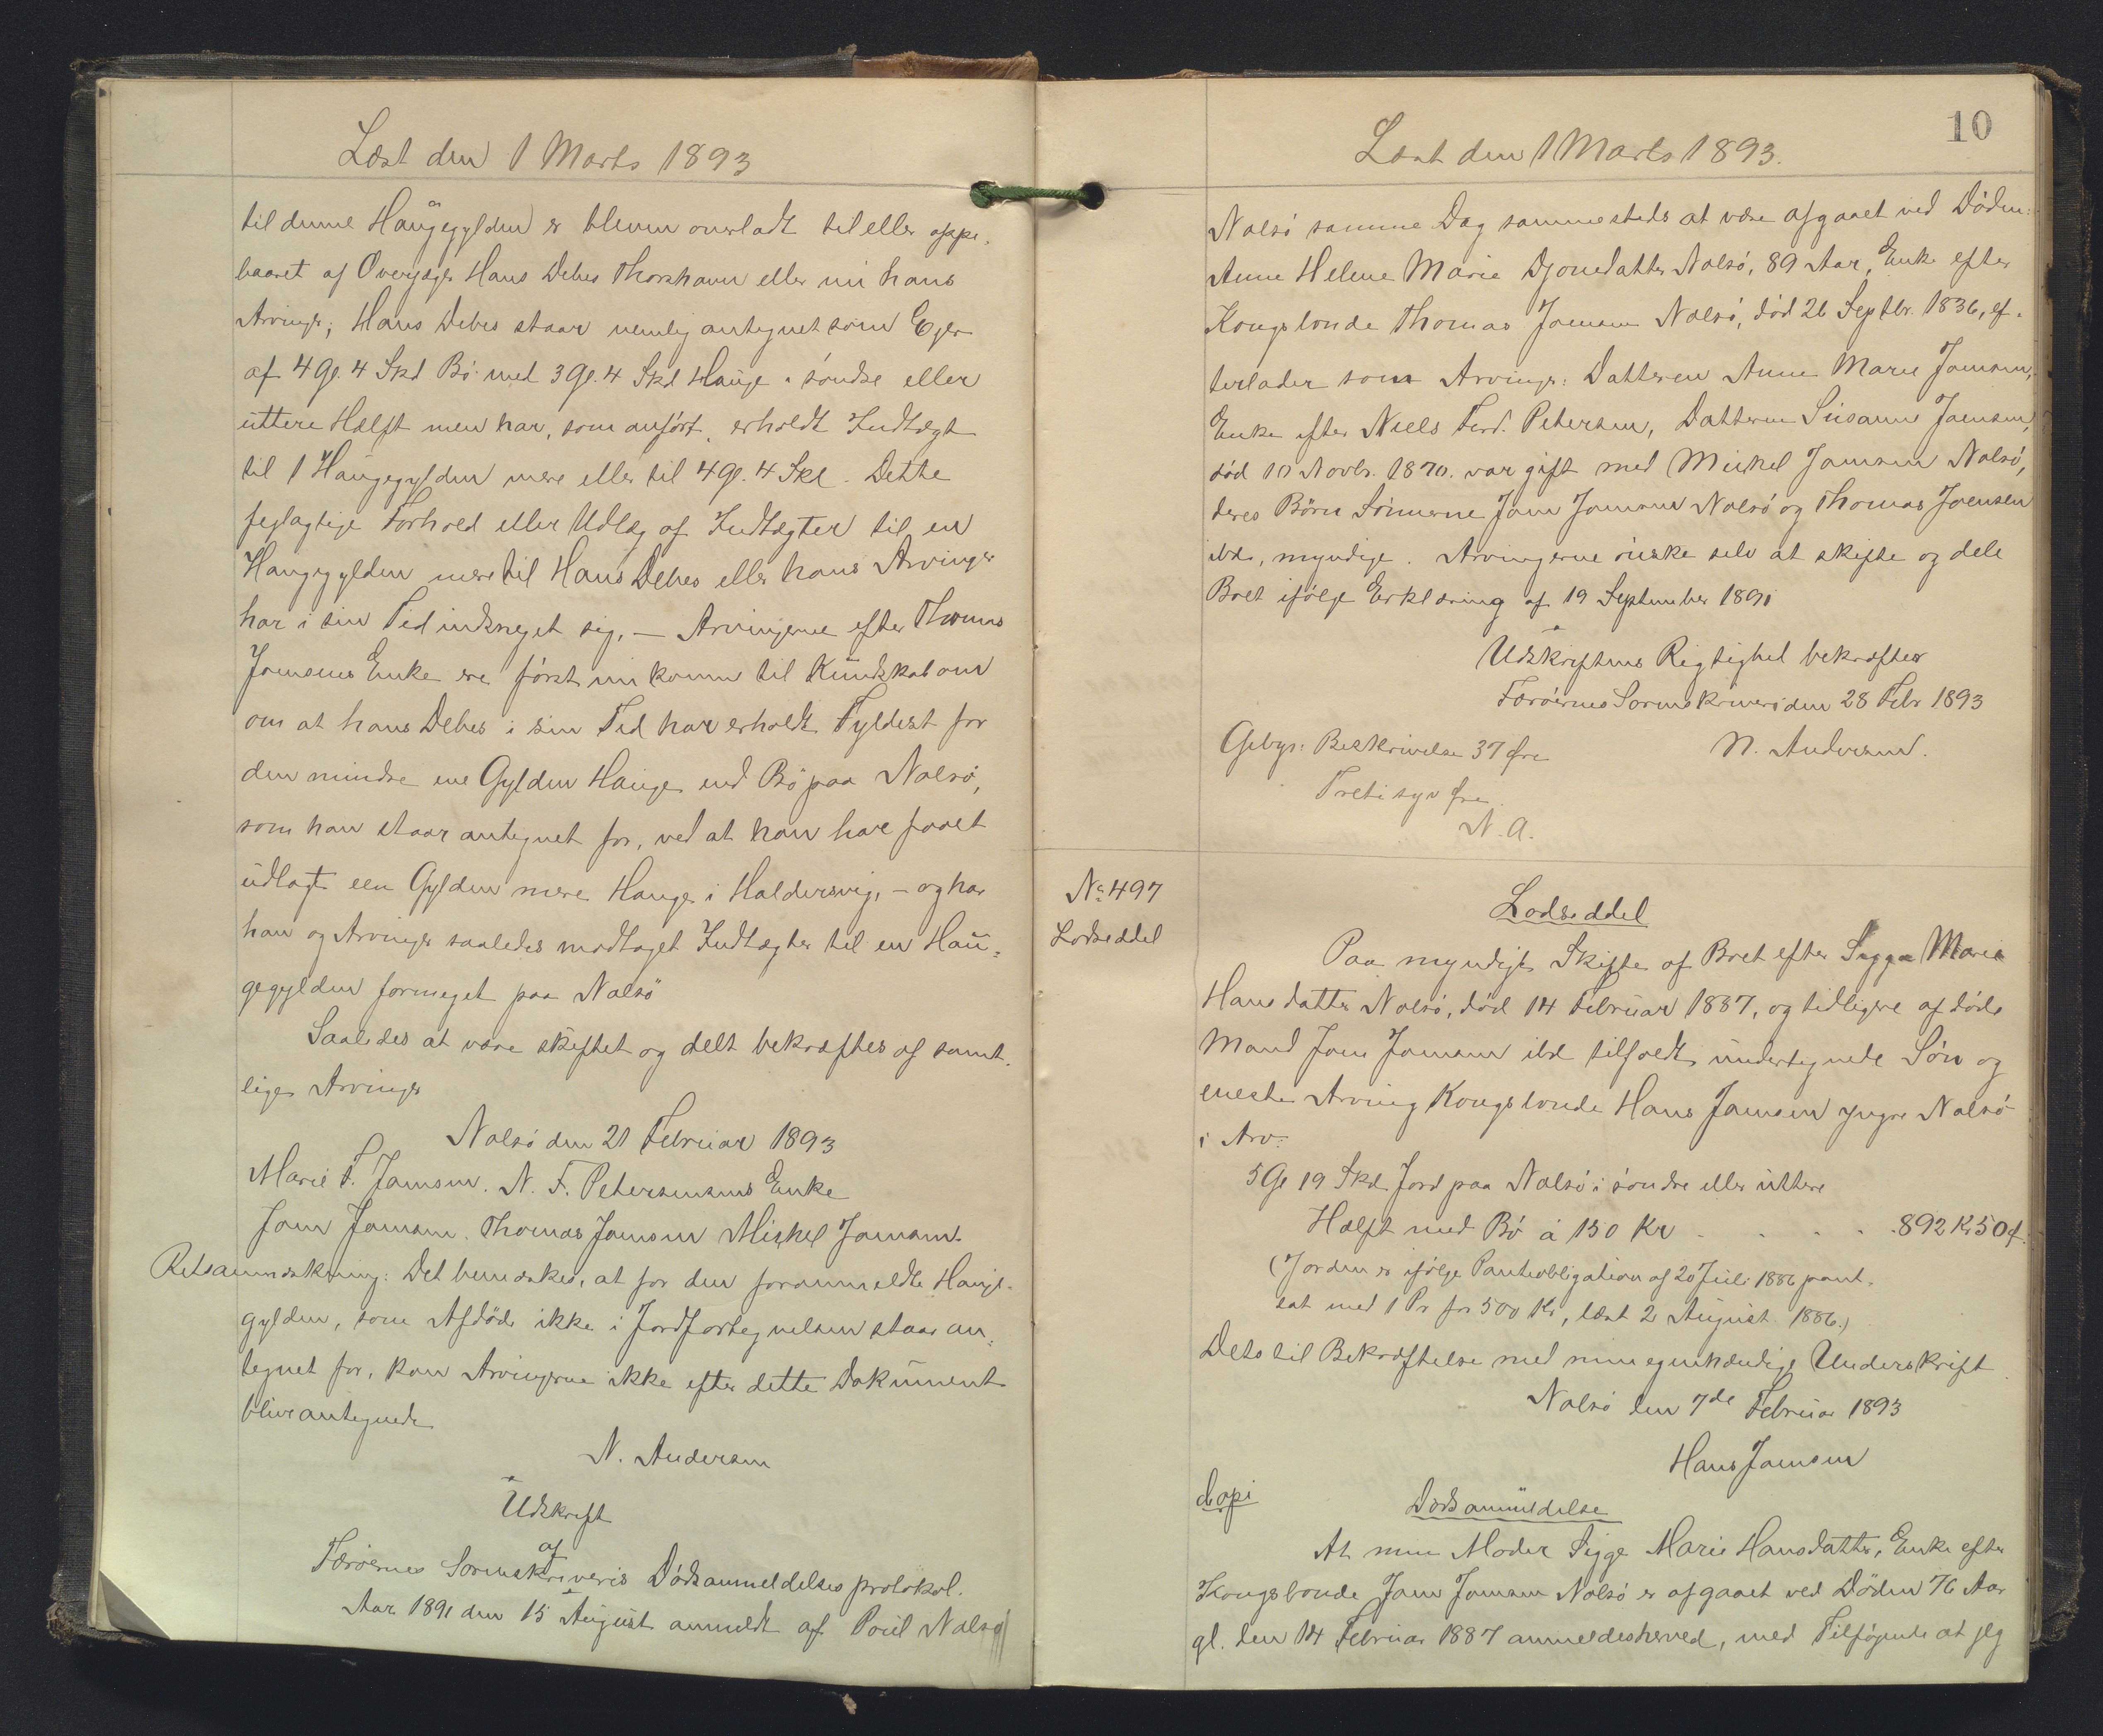 Læst den 1 Marts 1893
til denne Haugegylden er bleven overladt til eller oppe-
baaret af Overjæger Hans Debes Thorshavn eller nu hans
Arvinger; Hans Debes staar nemlig antegnet som Ejer
af 4 Gl. 4 Skd Bø med 3 Gl. 4 Skd Hauge i søndre eller
uttere Hælft men har, som anført, erholdt Indtægt
til 1 Haugegylden mere eller til 4 Gl. 4 Skd. Dette
fejlagtige Forhold eller Udlæg af Indtægter til en
Haugegylden mere til Hans Debes eller hans Arvinger
har i sin Tid indsneget sig, — Arvingerne efter Thomas
Joensens Enke ere først nu komne til Kundskab om
om at hans Debes i sin Tid har erholdt Fyldest for
den mindre ene Gylden Hauge end Bø paa Nolsø,
som han staar antegnet for, ved at han har faaet
udlagt een Gylden mere Hauge i Haldersvig, – og har
han og Arvinger saaledes modtaget Indtægter til en Hau-
gegylden formeget paa Nolsø
Saaledes at være skiftet og delt bekræftes af samt-
lige Arvinger
Nolsø den 21 Februar 1893
Marie F. Joensen. N. F. Petersensens Enke
Joen Joensen. Thomas Joensen Mickel Joensen.
Retsanmærkning: Det bemærkes, at for den foranmeldte Hauge-
gylden, som Afdøde ikke i Jordfortegnelsen staar an-
tegnet for, kan Arvingerne ikke efter dette Dokument
blive antegnede
N. Andersen
Udskrift
af
Færøernes Sorenskriveris Dødsanmeldelsesprotokol.
Aar 1891 den 15 August anmeldt af Poul Nolsø
10
Læst den 1 Marts 1893.
Nolsø samme Dag sammesteds at være afgaaet ved Døden:
Anne Helene Marie Djonedatter Nolsø, 89 Aar, Enke efter
Kongsbonde Thomas Joensen Nolsø, død 26 Septbr. 1836, ef-
terlader som Arvinger: Datteren Anne Marie Joensen,
Enke efter Niels Ferd. Petersen, Datteren Susanne Joensen,
død 10 Novbr. 1870. var gift med Mickel Joensen Nolsø,
deres Børn Sønnerne Joen Joensen Nolsø og Thomas Joensen
ibd., myndige. Arvingerne ønske selv at skifte og dele
Boet ifølge Erklæring af 19 September 1891
Udskriftens Rigtighed bekræftes
Færøernes Sorenskriveri den 28 Febr 1893
Gebyr: Beskrivelse 37 Øre N. Andersen.
Tretisyv Øre.
N. A.
No 497
Lodseddel
Lodseddel
Paa myndigt Skifte af Boet efter Sigga Marie
Hansdatter Nolsø, død 14 Februar 1887, og tidligere afdøde
Mand Joen Joensen ibd tilfaldt undertegnede Søn og
eneste Arving Kongsbonde Hans Joensen yngre Nolsø
i Arv:
5 Gl 19 Skd Jord paa Nolsø i søndre eller uttere
Hælft med Bø á 150 Kr . . . . . 892 Kr 50 Ø.
(Jorden er ifølge Panteobligation af 20 Juli 1886 pant-
sat med 1 Pr for 500 Kr, læst 2 August 1886.)
Dets til Bekræftelse med min egenhændige Underskrift
Nolsø den 7de Februar 1893
Hans Joensen
Copi
Dødsanmeldelse
At min Moder Sigge Marie Hansdatter, Enke efter
Kongsbonde Joen Joensen Nolsø er afgaaet ved Døden 76 Aar
gl. den 14 Februar 1887 anmeldes herved, med Tilføjende at jeg